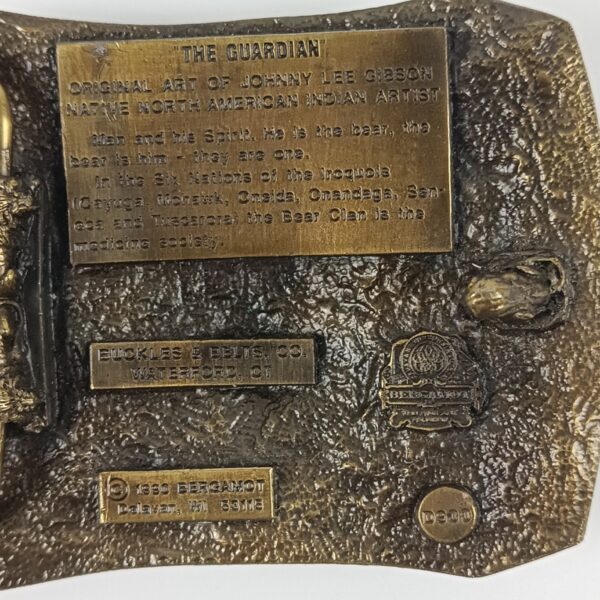 "THE GUARDIAN"
ORIGINAL ART OF JOHNNY LEE GIBSON
NATIVE NORTH AMERICAN INDIAN ARTIST
Man and his Spirit. He is the bear, the
bear is him - they are one.
In the Six Nations of the Iroquois
(Cayuga, Mohawk, Oneida, Onandaga, Sen-
eca and Tuscarora) the Bear Clan is the
medicine society.
BUCKLES & BELTS, CO.
WATERFORD, CT
BERGAMOT
© BERGAMOT
Delavan, WI 53115